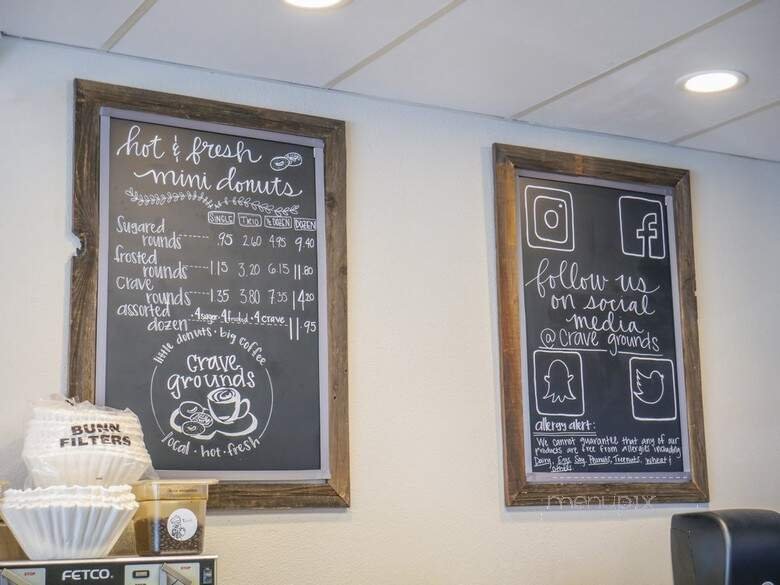 hot & fresh
mini donuts
SINGLE TRIO ½ DOZEN DOZEN
Sugared
rounds .95 2.60 4.95 9.40
frosted
rounds 1.15 3.20 6.15 11.80
crave
rounds 1.35 3.80 7.35 14.20
assorted
dozen • 4 sugar • 4 frosted • 4 crave 11.95
little donuts • big coffee
crave
grounds
local • hot • fresh
follow us
on social
media
@ crave grounds
allergy alert:
We cannot guarantee that any of our
products are free from allergies including
Dairy, Egg, Soy, Peanuts, Treenuts, wheat &
others
BUNN
FILTERS
FETCO
STOP
STOP
menupix